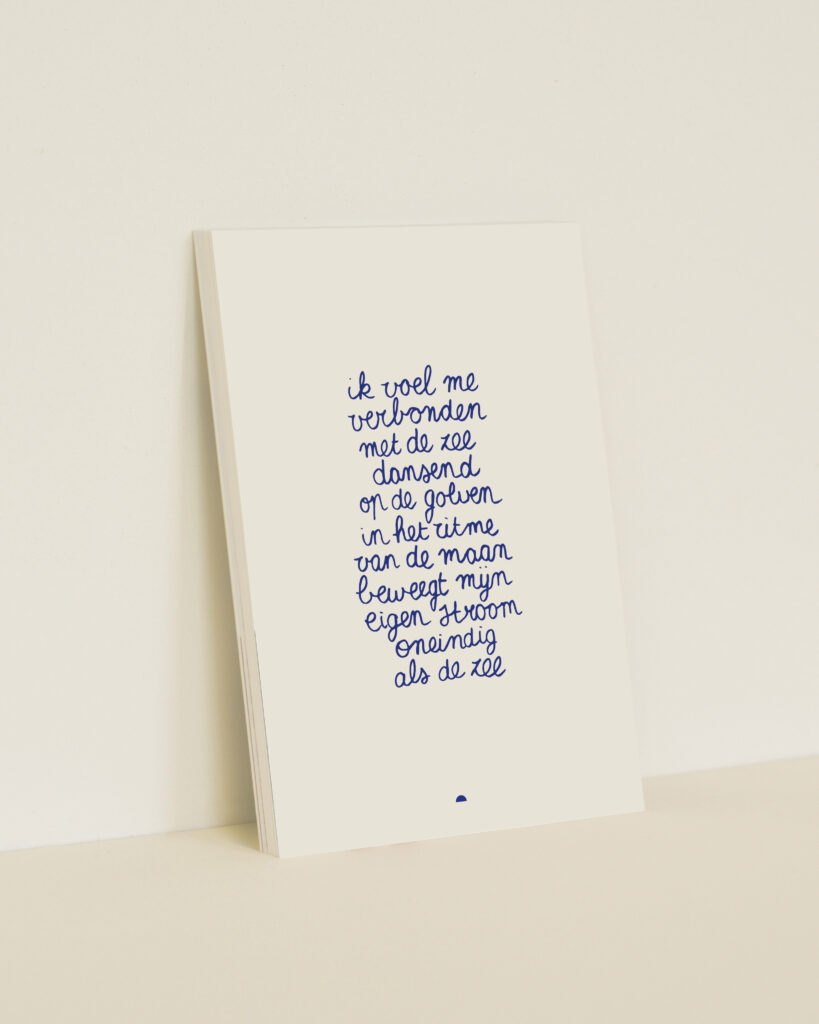 ik voel me
verbonden
met de zee
dansend
op de golven
in het ritme
van de maan
beweegt mijn
eigen stroom
oneindig
als de zee